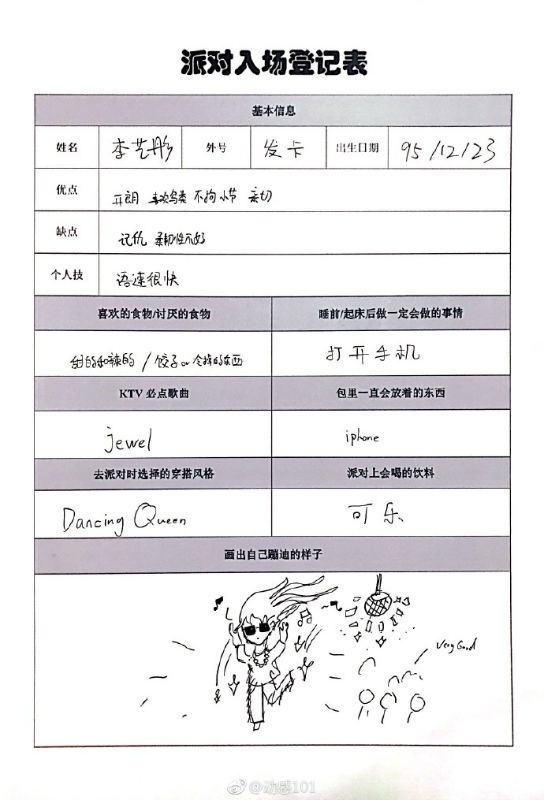 派对入场登记表
基本信息
姓名 李艺彤 外号 发卡 出生日期 95/12/23
优点 开朗 喜欢鸟类 不拘小节 亲切
缺点 记仇 柔韧性不好
个人技 语速很快
喜欢的食物/讨厌的食物 睡前/起床后做一定会做的事情
甜的和辣的 / 饺子 的东西 打开手机
KTV 必点歌曲 包里一直会放着的东西
jewel iphone
去派对时选择的穿搭风格 派对上会喝的饮料
Dancing Queen 可乐
画出自己蹦迪的样子
Very Good
@动感101